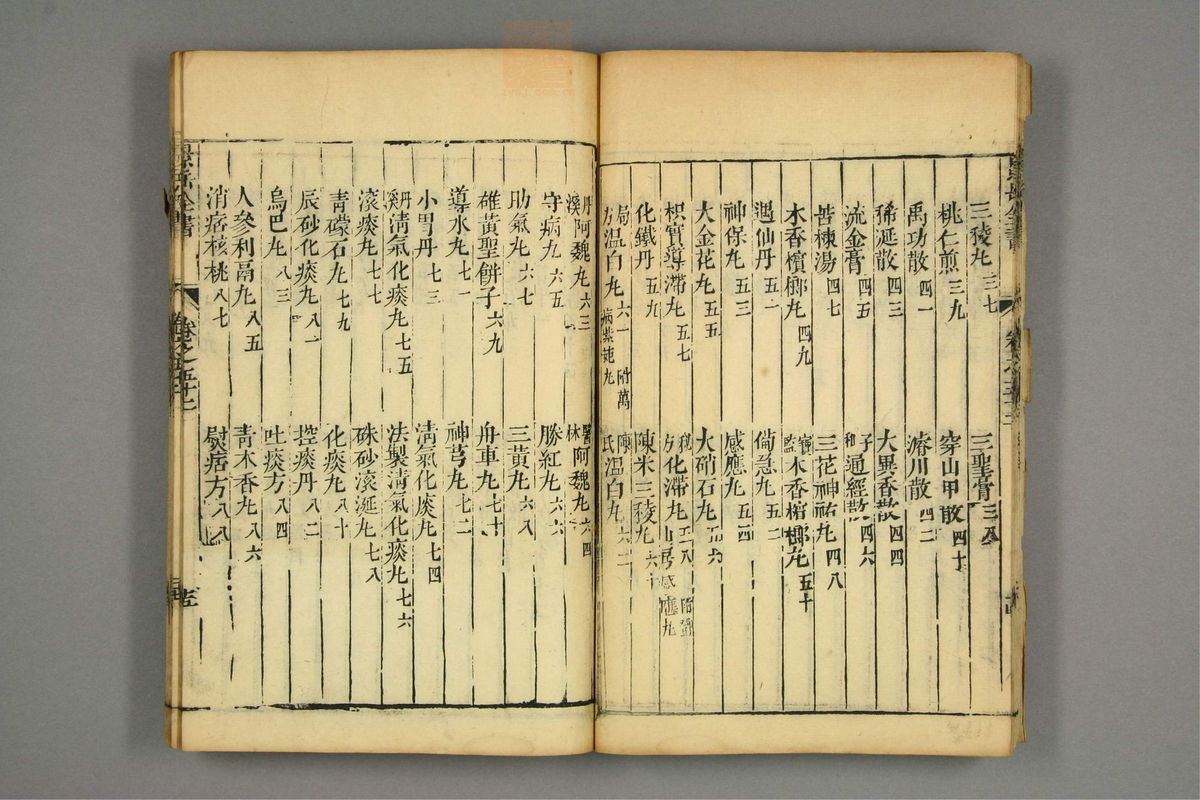 三稜丸 三七 三聖膏 三八
桃仁煎 三九 穿山甲散 四十
禹功散 四一 濬川散 四二
稀涎散 四三 大異香散 四四
流金膏 四五 子和通經散 四六
苦楝湯 四七 三花神祐丸 四八
木香檳榔丸 四九 寶鑑木香檳榔丸 五十
遇仙丹 五一 備急丸 五二
神保丸 五三 感應丸 五四
大金花丸 五五 大硝石丸 五六
枳實導滯丸 五七 秘方化滯丸 五八
化鐵丹 五九 陳米三稜丸 六十
局方溫白丸 六一 附萬病紫菀丸 陳氏溫白丸 六二
丹溪阿魏丸 六三 醫林阿魏丸 六四
守病丸 六五 勝紅丸 六六
助氣丸 六七 三黃丸 六八
雄黃聖餅子 六九 舟車丸 七十
導水丸 七一 神芎丸 七二
小胃丹 七三 清氣化痰丸 七四
丹溪清氣化痰丸 七五 法製清氣化痰丸 七六
滾痰丸 七七 硃砂滾涎丸 七八
青礞石丸 七九 化痰丸 八十
辰砂化痰丸 八一 控痰丹 八二
烏巴丸 八三 吐痰方 八四
人參利膈丸 八五 青木香丸 八六
消痞核桃 八七 熨痞方 八八
景岳全書 卷之五十二